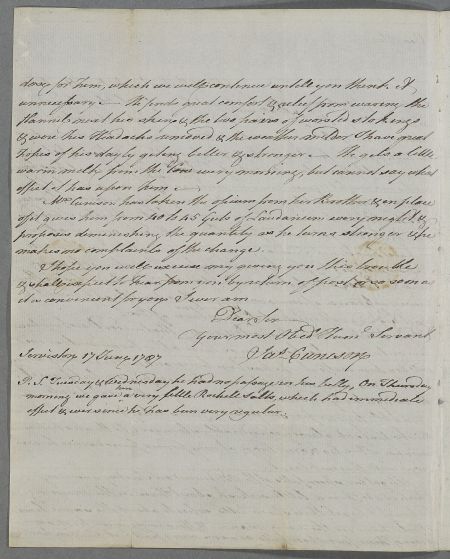 does for him, which we will continue untill you think it
unnecessary. — He finds great comfort & relief from wearing the
flannel next his skin & the two pairs of worsted stockings
& were his Headachs removed & the weather milder I have great
hopes of his dayly geting better & stronger. — He gets a little
warm milk from the Cow every morning, but cannot say what
effect it has upon him. —
Mrs Cunison has taken the opium from her Brother & in place
of it gives him from 40 to 45 Guts of Laudanum every night, &
proposes diminishing the quantity as he turns stronger & he
makes no complaints of the change.
I hope you will excuse my giving you this trouble
& shall expect to hear from you by return of post or as soon as
it is convenient for you. I ever am
Dear Sir
Your most Obedt Servant
Jas Cunison
17 June 1787
P.S. Tuesday & Wednesday he had no passage in his belly, On Thursday
morning we gave him a very little Rochell Salts, which had immediate
effect & ever since he has been very regular.